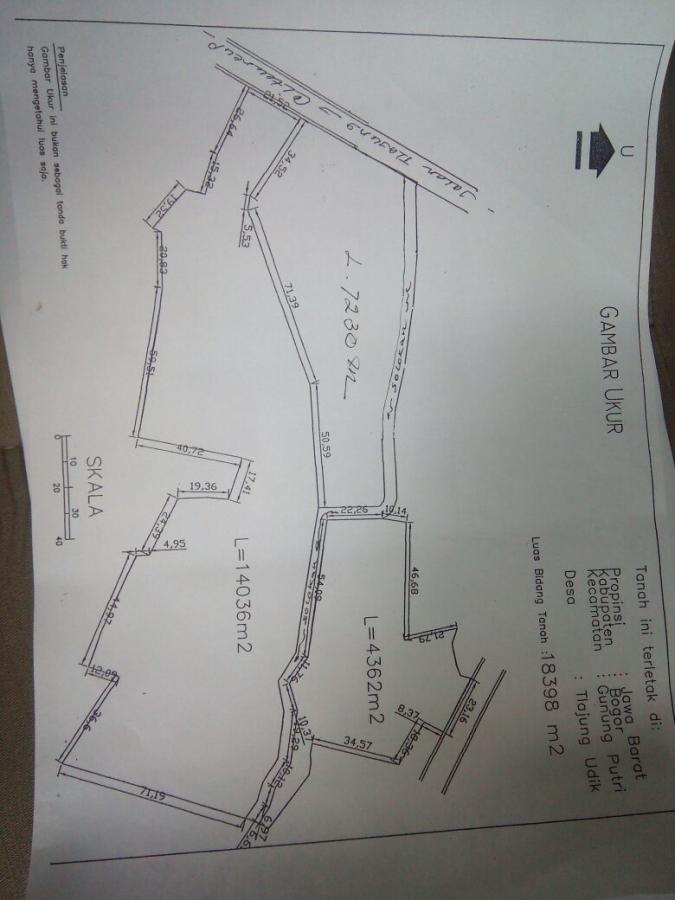 GAMBAR UKUR
U
Tanah ini terletak di:
Propinsi : Jawa Barat
Kabupaten : Bogor
Kecamatan : Gunung Putri
Desa : Tlajung Udik
Luas Bidang Tanah :18398 m2
L. 7230 m
L=14036m2
L=4362m2
26,64
15,32
19,52
20,83
59,51
34,52
5,53
71,39
50,59
22,26
10,14
46,68
21,79
23,16
8,37
34,57
54,09
40,72
17,41
19,36
24,39
4,95
44,97
12,09
36,6
71,19
SKALA
0 10 20 30 40
Penjelasan
Gambar Ukur ini bukan sebagai tanda bukti hak
hanya mengetahui luas saja.